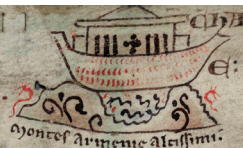 E:
Montes Armenie Altissimi: